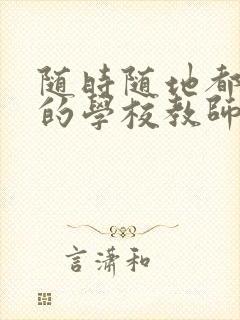 随時随地都
的學校教師
言瀟和